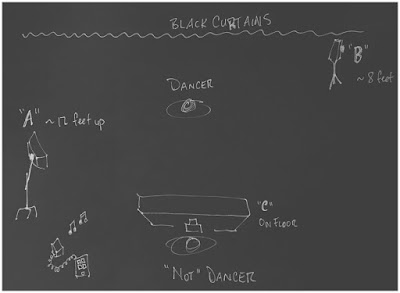 BLACK CURTAINS
"B"
~ 8 feet
DANCER
"A" ~ 12 feet up
"C"
ON FLOOR
"NOT" DANCER